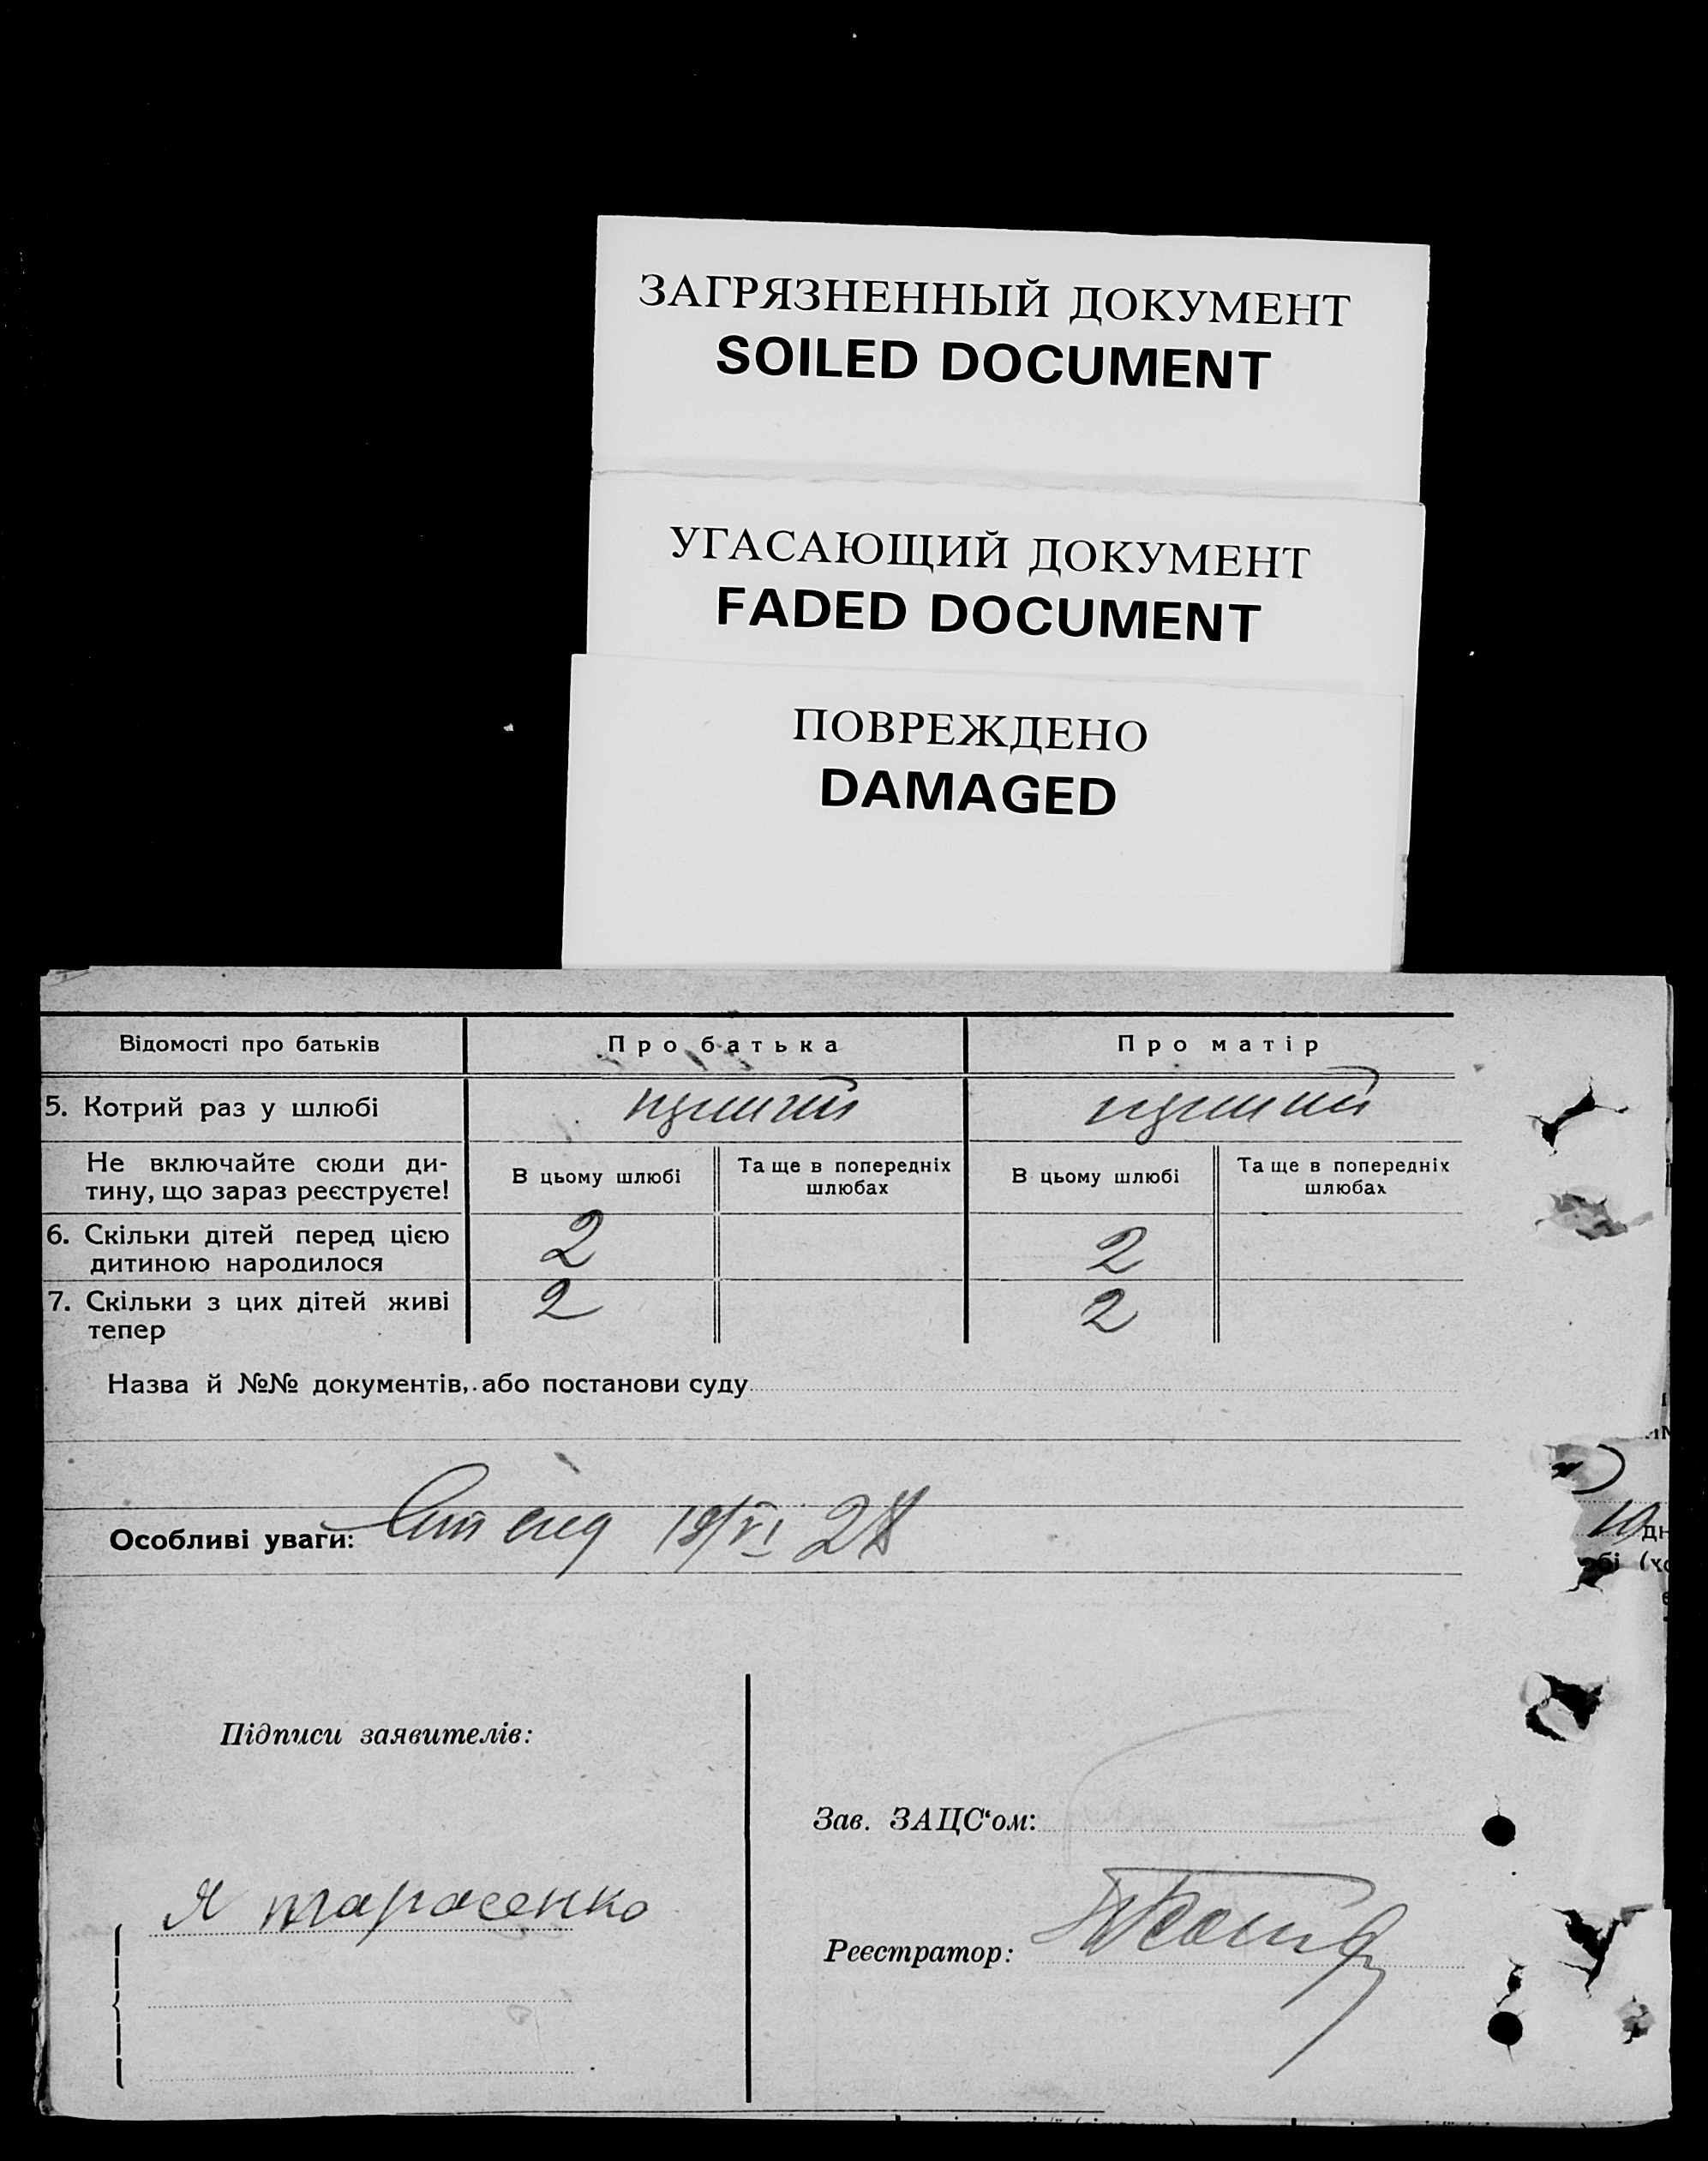 ЗАГРЯЗНЕННЫЙ ДОКУМЕНТ
SOILED DOCUMENT
УГАСАЮЩИЙ ДОКУМЕНТ
FADED DOCUMENT
ПОВРЕЖДЕНО
DAMAGED
Відомості про батьків Про батька Про матір
5. Котрий раз у шлюбі
Не включайте сюди ди-
тину, що зараз реєструєте!
В цьому шлюбі
Та ще в попередніх
шлюбах
В цьому шлюбі
Та ще в попередніх
шлюбах
6. Скільки дітей перед цією
дитиною народилося
2 2
7. Скільки з цих дітей живі
тепер
2 2
Назва й №№ документів, або постанови суду
Особливі уваги: 28
Підписи заявителів:
Зав. ЗАЦС‘ом:
Я тарасенко
Реєстратор: